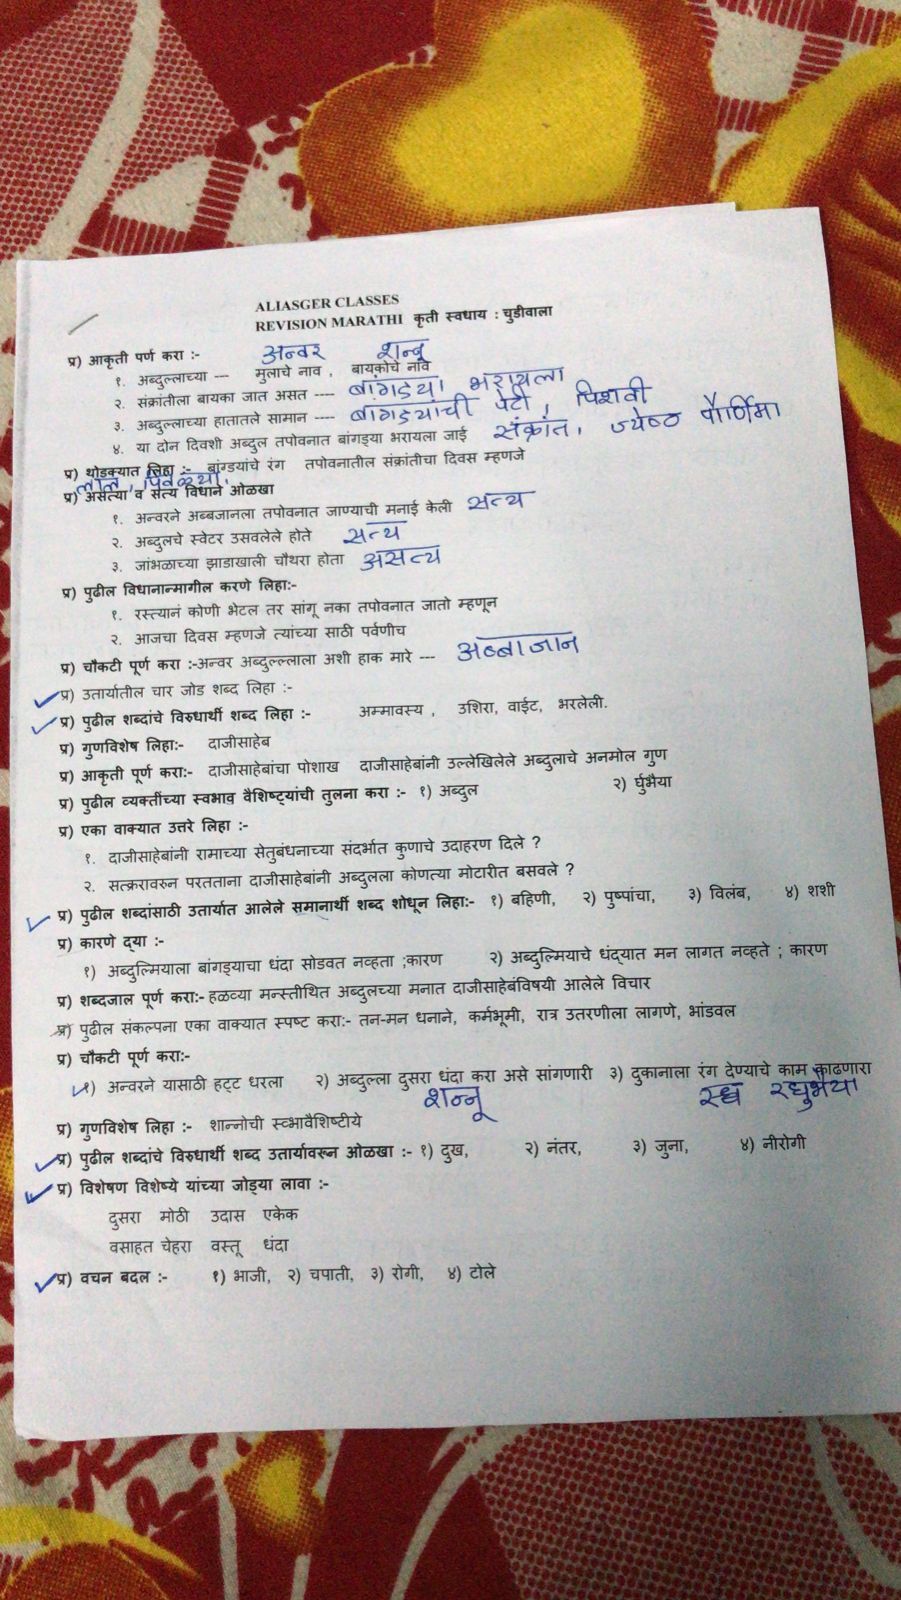 ALIASGER CLASSES
REVISION MARATHI कृती स्वधाय : चुडीवाला
प्र) आकृती पर्ण करा :- अन्वर शन्नू
१. अब्दुल्लाच्या --- मुलाचे नाव , बायकोचे नाव
२. संक्रांतीला बायका जात असत ---- बांगड्या भरायला
३. अब्दुल्लाच्या हातातले सामान ---- बांगड्यांची पेटी, पिशवी
४. या दोन दिवशी अब्दुल तपोवनात बांगड्या भरायला जाई संक्रांत, ज्येष्ठ पौर्णिमा
प्र) थोडक्यात लिहा :- बांग्डयांचे रंग तपोवनातील संक्रांतीचा दिवस म्हणजे
लाल, पिवळ्या,
प्र) असत्या व सत्य विधाने ओळखा
१. अन्वरने अब्बजानला तपोवनात जाण्याची मनाई केली सत्य
२. अब्दुलचे स्वेटर उसवलेले होते सत्य
३. जांभळाच्या झाडाखाली चौथरा होता असत्य
प्र) पुढील विधानान्मागील करणे लिहा:-
१. रस्त्यानं कोणी भेटल तर सांगू नका तपोवनात जातो म्हणून
२. आजचा दिवस म्हणजे त्यांच्या साठी पर्वणीच
प्र) चौकटी पूर्ण करा :-अन्वर अब्दुल्ल्लाला अशी हाक मारे --- अब्बाजान
प्र) उतार्यातील चार जोड शब्द लिहा :-
प्र) पुढील शब्दांचे विरुधार्थी शब्द लिहा :- अम्मावस्य , उशिरा, वाईट, भरलेली.
प्र) गुणविशेष लिहा:- दाजीसाहेब
प्र) आकृती पूर्ण करा:- दाजीसाहेबांचा पोशाख दाजीसाहेबांनी उल्लेखिलेले अब्दुलाचे अनमोल गुण
प्र) पुढील व्यक्तींच्या स्वभाव वैशिष्ट्यांची तुलना करा :- १) अब्दुल २) र्घुभैया
प्र) एका वाक्यात उत्तरे लिहा :-
१. दाजीसाहेबांनी रामाच्या सेतुबंधनाच्या संदर्भात कुणाचे उदाहरण दिले ?
२. सत्कारावरुन परतताना दाजीसाहेबांनी अब्दुलला कोणत्या मोटारीत बसवले ?
प्र) पुढील शब्दांसाठी उतार्यात आलेले समानार्थी शब्द शोधून लिहा:- १) बहिणी, २) पुष्पांचा, ३) विलंब, ४) शशी
प्र) कारणे द्या :-
१) अब्दुल्मियाला बांगड्याचा धंदा सोडवत नव्हता ;कारण २) अब्दुल्मियाचे धंद्यात मन लागत नव्हते ; कारण
प्र) शब्दजाल पूर्ण करा:- हळव्या मन्स्तीथित अब्दुलच्या मनात दाजीसाहेबंविषयी आलेले विचार
प्र) पुढील संकल्पना एका वाक्यात स्पष्ट करा:- तन-मन धनाने, कर्मभूमी, रात्र उतरणीला लागणे, भांडवल
प्र) चौकटी पूर्ण करा:-
१) अन्वरने यासाठी हट्ट धरला २) अब्दुल्ला दुसरा धंदा करा असे सांगणारी ३) दुकानाला रंग देण्याचे काम काढणारा
शन्नू रघुभैया
प्र) गुणविशेष लिहा :- शान्नोची स्व्भावैशिष्टीये
प्र) पुढील शब्दांचे विरुधार्थी शब्द उतार्यावरुन ओळखा :- १) दुख, २) नंतर, ३) जुना, ४) नीरोगी
प्र) विशेषण विशेष्ये यांच्या जोड्या लावा :-
दुसरा मोठी उदास एकेक
वसाहत चेहरा वस्तू धंदा
प्र) वचन बदल :- १) भाजी, २) चपाती, ३) रोगी, ४) टोले